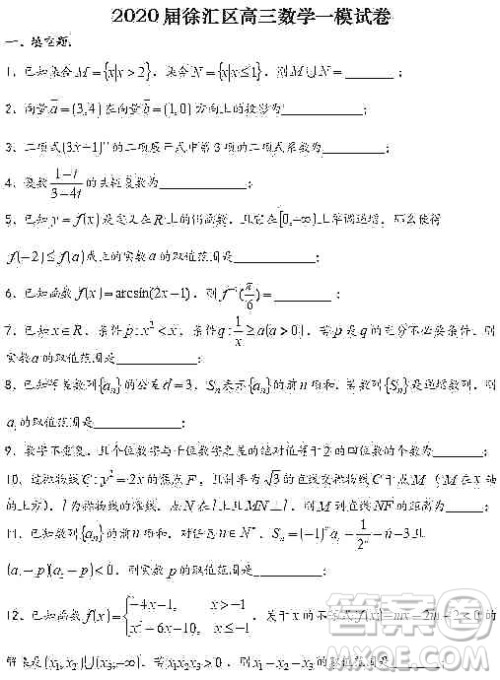 2020届徐汇区高三数学一模试卷
一、填空题
1、已知集合M={x|x>2},集合N={x|x≤1},则M∪N=________;
2、向量a=(3,4)在向量b=(1,0)方向上的投影为________;
3、二项式(3x-1)的二项展开式中第3项的二项式系数为________;
4、复数(1-i)/(3-4i)的共轭复数为________;
5、已知y=f(x)是定义在R上的偶函数,且它在[0,+∞)上单调递增,那么使得
f(-2)≤f(a)成立的实数a的取值范围是________;
6、已知函数f(x)=arcsin(2x-1),则f⁻¹(π/6)=________;
7、已知x∈R,条件p:x²<x,条件q:1/x≥a(a>0),若p是q的充分不必要条件,则
实数a的取值范围是________;
8、已知等差数列{aₙ}的公差d=3,Sₙ表示{aₙ}的前n项和,若数列{Sₙ}是递增数列,则
a₁的取值范围是________;
9、数字不重复,且个位数字与千位数字之差的绝对值等于2的四位数的个数为________;
10、过抛物线C:y²=2x的焦点F,且斜率为√3的直线交抛物线C于点M(M在x轴
的上方),l为抛物线的准线,点N在l上且MN⊥l,则M到直线NF的距离为________;
11、已知数列{aₙ}的前n项和,对任意n∈N*,Sₙ=(-1)ⁿaₙ+1/2ⁿ+n-3且
(a-p)(a-p)<0,则实数p的取值范围是________;
12、已知函数f(x)={-4x-1, x>-1 x²+6x-10, x≤-1 关于x的不等式f(x)-mx-2m-2<0的
解集是(x₁,x₂)∪(x₃,+∞),若x₁x₂x₃>0,则x₁-x₂-x₃的取值范围是________;
答案圈